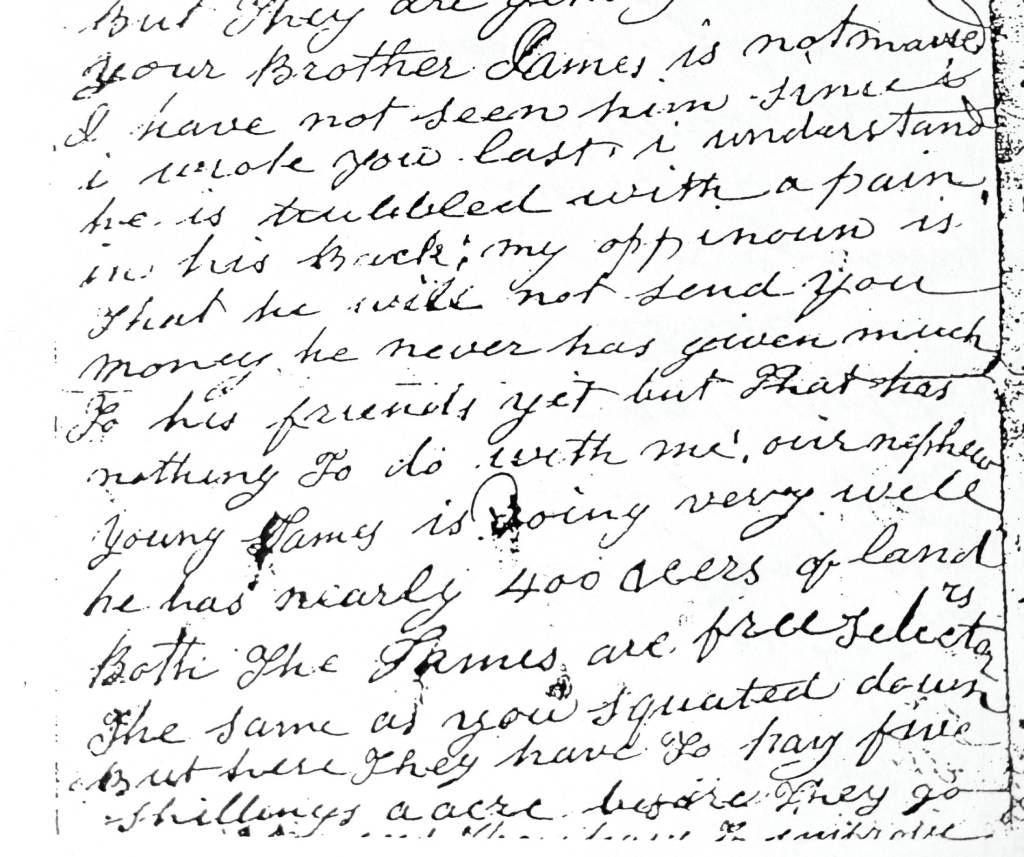 But They are
your Brother James is not married
I have not seen him since
i wrote you last, i understand
he is trubbled with a pain
in his Back; my oppinoun is
That he will not send you
money, he never has given much
To his friends yet but That has
nothing To do with me, our nephew
young James is doing very well
he has nearly 400 acers of land
Both The James are free selectors
The same as you squated down
But here They have To pay five
shillings a acre before They go